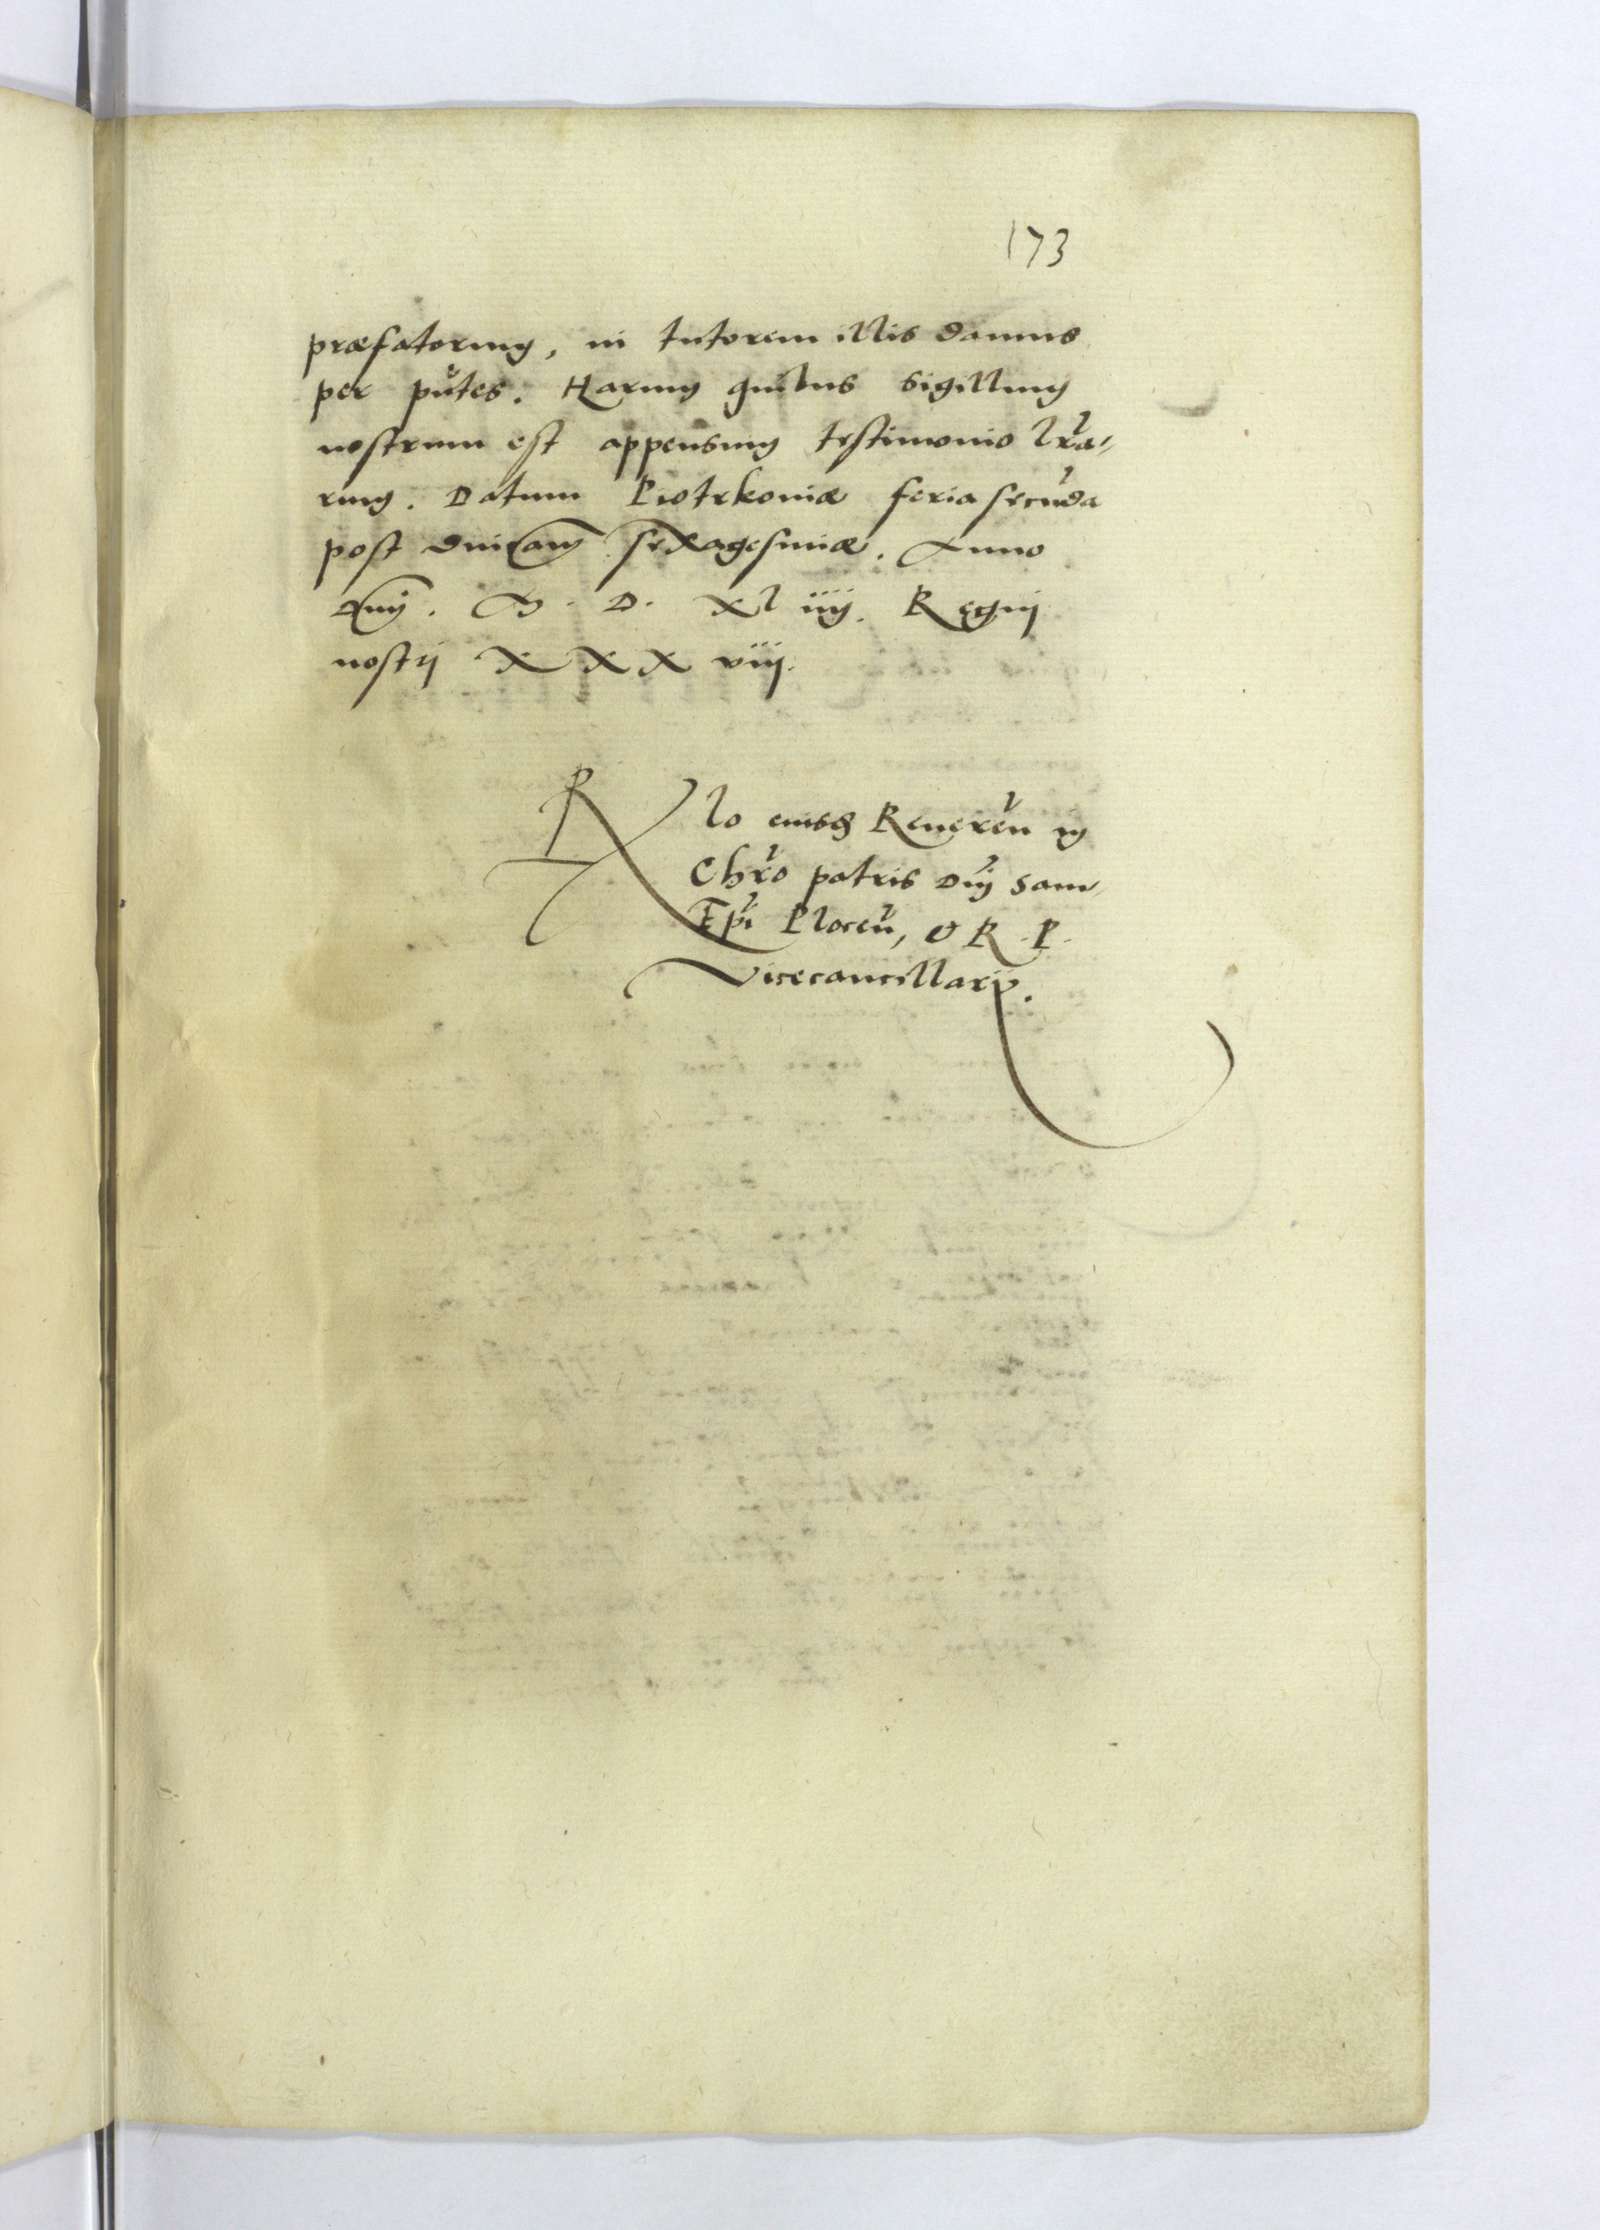 173
præfatorum, in tutorem illis damus
per pñtes. Harum quibus sigillum
nostrum est appensum testimonio lr̃a-
rum. Datum Piotrkoniæ feria secũda
post dnicam sexagesimæ. Anno
dni. M. D. XL iiij. Regnij
nostrj X X X viij.
Rlo eiusd Reueren̄ in
Chr̃o patris Dñj Sam
Ep̃i Plocen̄, & R. P.
Vicecancellarij.